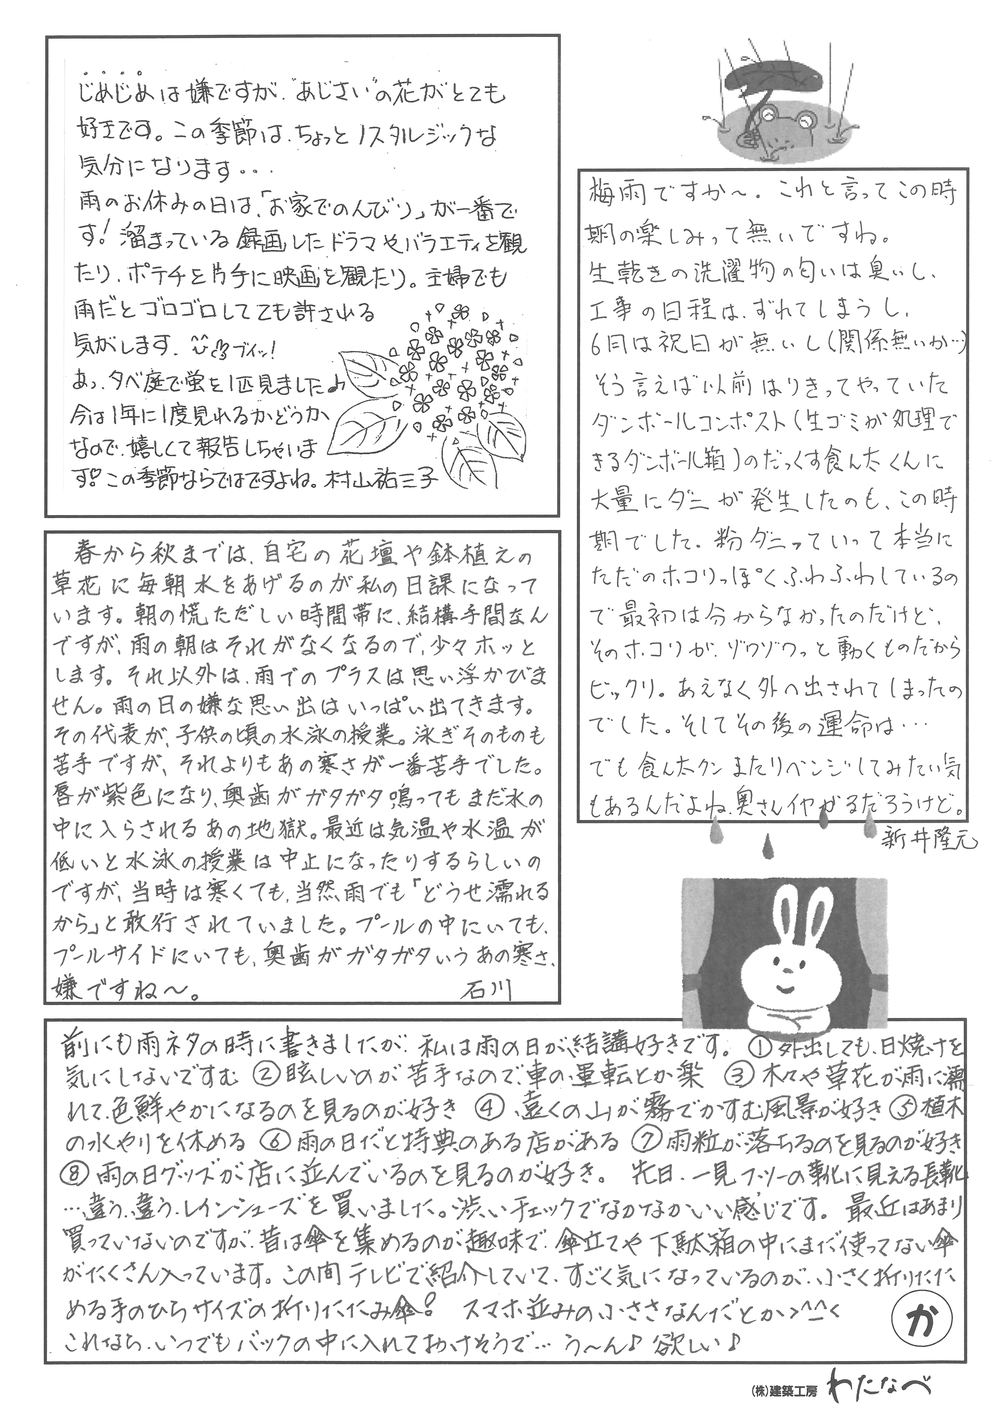 じめじめは嫌ですが、"あじさい"の花がとても
好きです。この季節は、ちょっとノスタルジックな
気分になります・・・
雨のお休みの日は、「お家でのんびり」が一番で
す！溜まっている録画したドラマやバラエティを観
たり、ポテチを片手に映画を観たり。主婦でも
雨だとゴロゴロしてても許される
気がします。ブイッ！
あっ、夕べ庭で蛍を1匹見ました♪
今は1年に1度見れるかどうか
なので、嬉しくて報告しちゃいま
す！この季節ならではですよね。村山祐三子
梅雨ですか〜。これと言ってこの時
期の楽しみって無いですね。
生乾きの洗濯物の匂いは臭いし、
工事の日程は、ずれてしまうし、
6月は祝日が無いし(関係無いか…)
そう言えば以前はりきってやっていた
ダンボールコンポスト(生ゴミが処理で
きるダンボール箱)のだっくす食ん太くんに
大量にダニが発生したのも、この時
期でした。粉ダニっていって本当に
ただのホコリっぽくふわふわしているの
で最初は分からなかったのだけど、
そのホコリが、ゾワゾワっと動くものだから
ビックリ。あえなく外へ出されてしまったの
でした。そしてその後の運命は・・・
でも食ん太クンまたリベンジしてみたい気
もあるんだよね。奥さんイヤがるだろうけど。
新井隆元
春から秋までは、自宅の花壇や鉢植えの
草花に毎朝水をあげるのが私の日課になって
います。朝の慌ただしい時間帯に、結構手間なん
ですが、雨の朝はそれがなくなるので、少々ホッと
します。それ以外は、雨でのプラスは思い浮かびま
せん。雨の日の嫌な思い出はいっぱい出てきます。
その代表が、子供の頃の水泳の授業。泳ぎそのものも
苦手ですが、それよりもあの寒さが一番苦手でした。
唇が紫色になり、奥歯がガタガタ鳴ってもまだ水の
中に入らされるあの地獄。最近は気温や水温が
低いと水泳の授業は中止になったりするらしいの
ですが、当時は寒くても、当然雨でも「どうせ濡れる
から」と敢行されていました。プールの中にいても、
プールサイドにいても、奥歯がガタガタいうあの寒さ、
嫌ですね〜。 石川
前にも雨ネタの時に書きましたが、私は雨の日が、結講好きです。 ①外出しても、日焼けを
気にしないですむ ②眩しいのが苦手なので、車の運転とか楽 ③木々や草花が雨に濡
れて、色鮮やかになるのを見るのが好き ④遠くの山が霧でかすむ風景が好き ⑤植木
の水やりを休める ⑥雨の日だと特典のある店がある ⑦雨粒が落ちるのを見るのが好き
⑧雨の日グッズが店に並んでいるのを見るのが好き。 先日、一見フツーの靴に見える長靴
…違う、違う、レインシューズを買いました。渋いチェックでなかなかいい感じです。最近はあまり
買っていないのですが、昔は傘を集めるのが趣味で、傘立てや下駄箱の中にまだ使ってない傘
がたくさん入っています。この間テレビで紹介していて、すごく気になっているのが、小さく折りたた
める手のひらサイズの折りたたみ傘！ スマホ並みの小ささなんだとか>^^<
これなら、いつでもバックの中に入れておけそうで… う〜ん♪ 欲しい♪
か
(株)建築工房 わたなべ